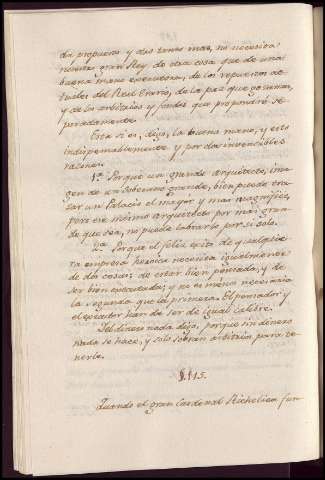 da propuesto y dos tantos mas, no necesita
nuestro gran Rey de otra cosa que de una
buena mano executora, de los repuestos ac-
tuales del Real Erario, de la paz que gozamos,
y de los arbitrios y fondos que propondré se-
paradamente.
Esta si es, digo, la buena mano, y esto
indispensablemente y por dos invencibles
razones.
1.ª Porque un grande arquitecto, imá-
gen de un Soberano grande, bien puede tra-
zar un Palacio el mayor y mas magnífico,
pero ese mismo arquitecto por mas gran-
de que sea, no puede labrarlo por sí solo.
2.ª Porque el feliz exito de qualquie-
ra empresa heroica necesita igualmente
de dos cosas; de estar bien pensada, y de
ser bien executada; y no es menos necesaria
la segunda que la primera. El pensador y
el executor han de ser de igual calibre.
Del dinero nada digo, porque sin dinero
nada se hace, y solo sobran arbitrios para te-
nerle.
§. 115.
Quando el gran Cardenal Richelieu fun-